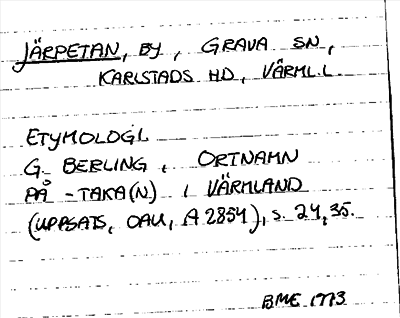 JÄRPETAN, BY, GRAVA SN,
KARLSTADS HD, VÄRML.L.
ETYMOLOGI
G. BERLING, ORTNAMN
PÅ -TAKA(N) I VÄRMLAND
(UPPSATS, OAU, A 2854), s. 24, 35.
BME 1973